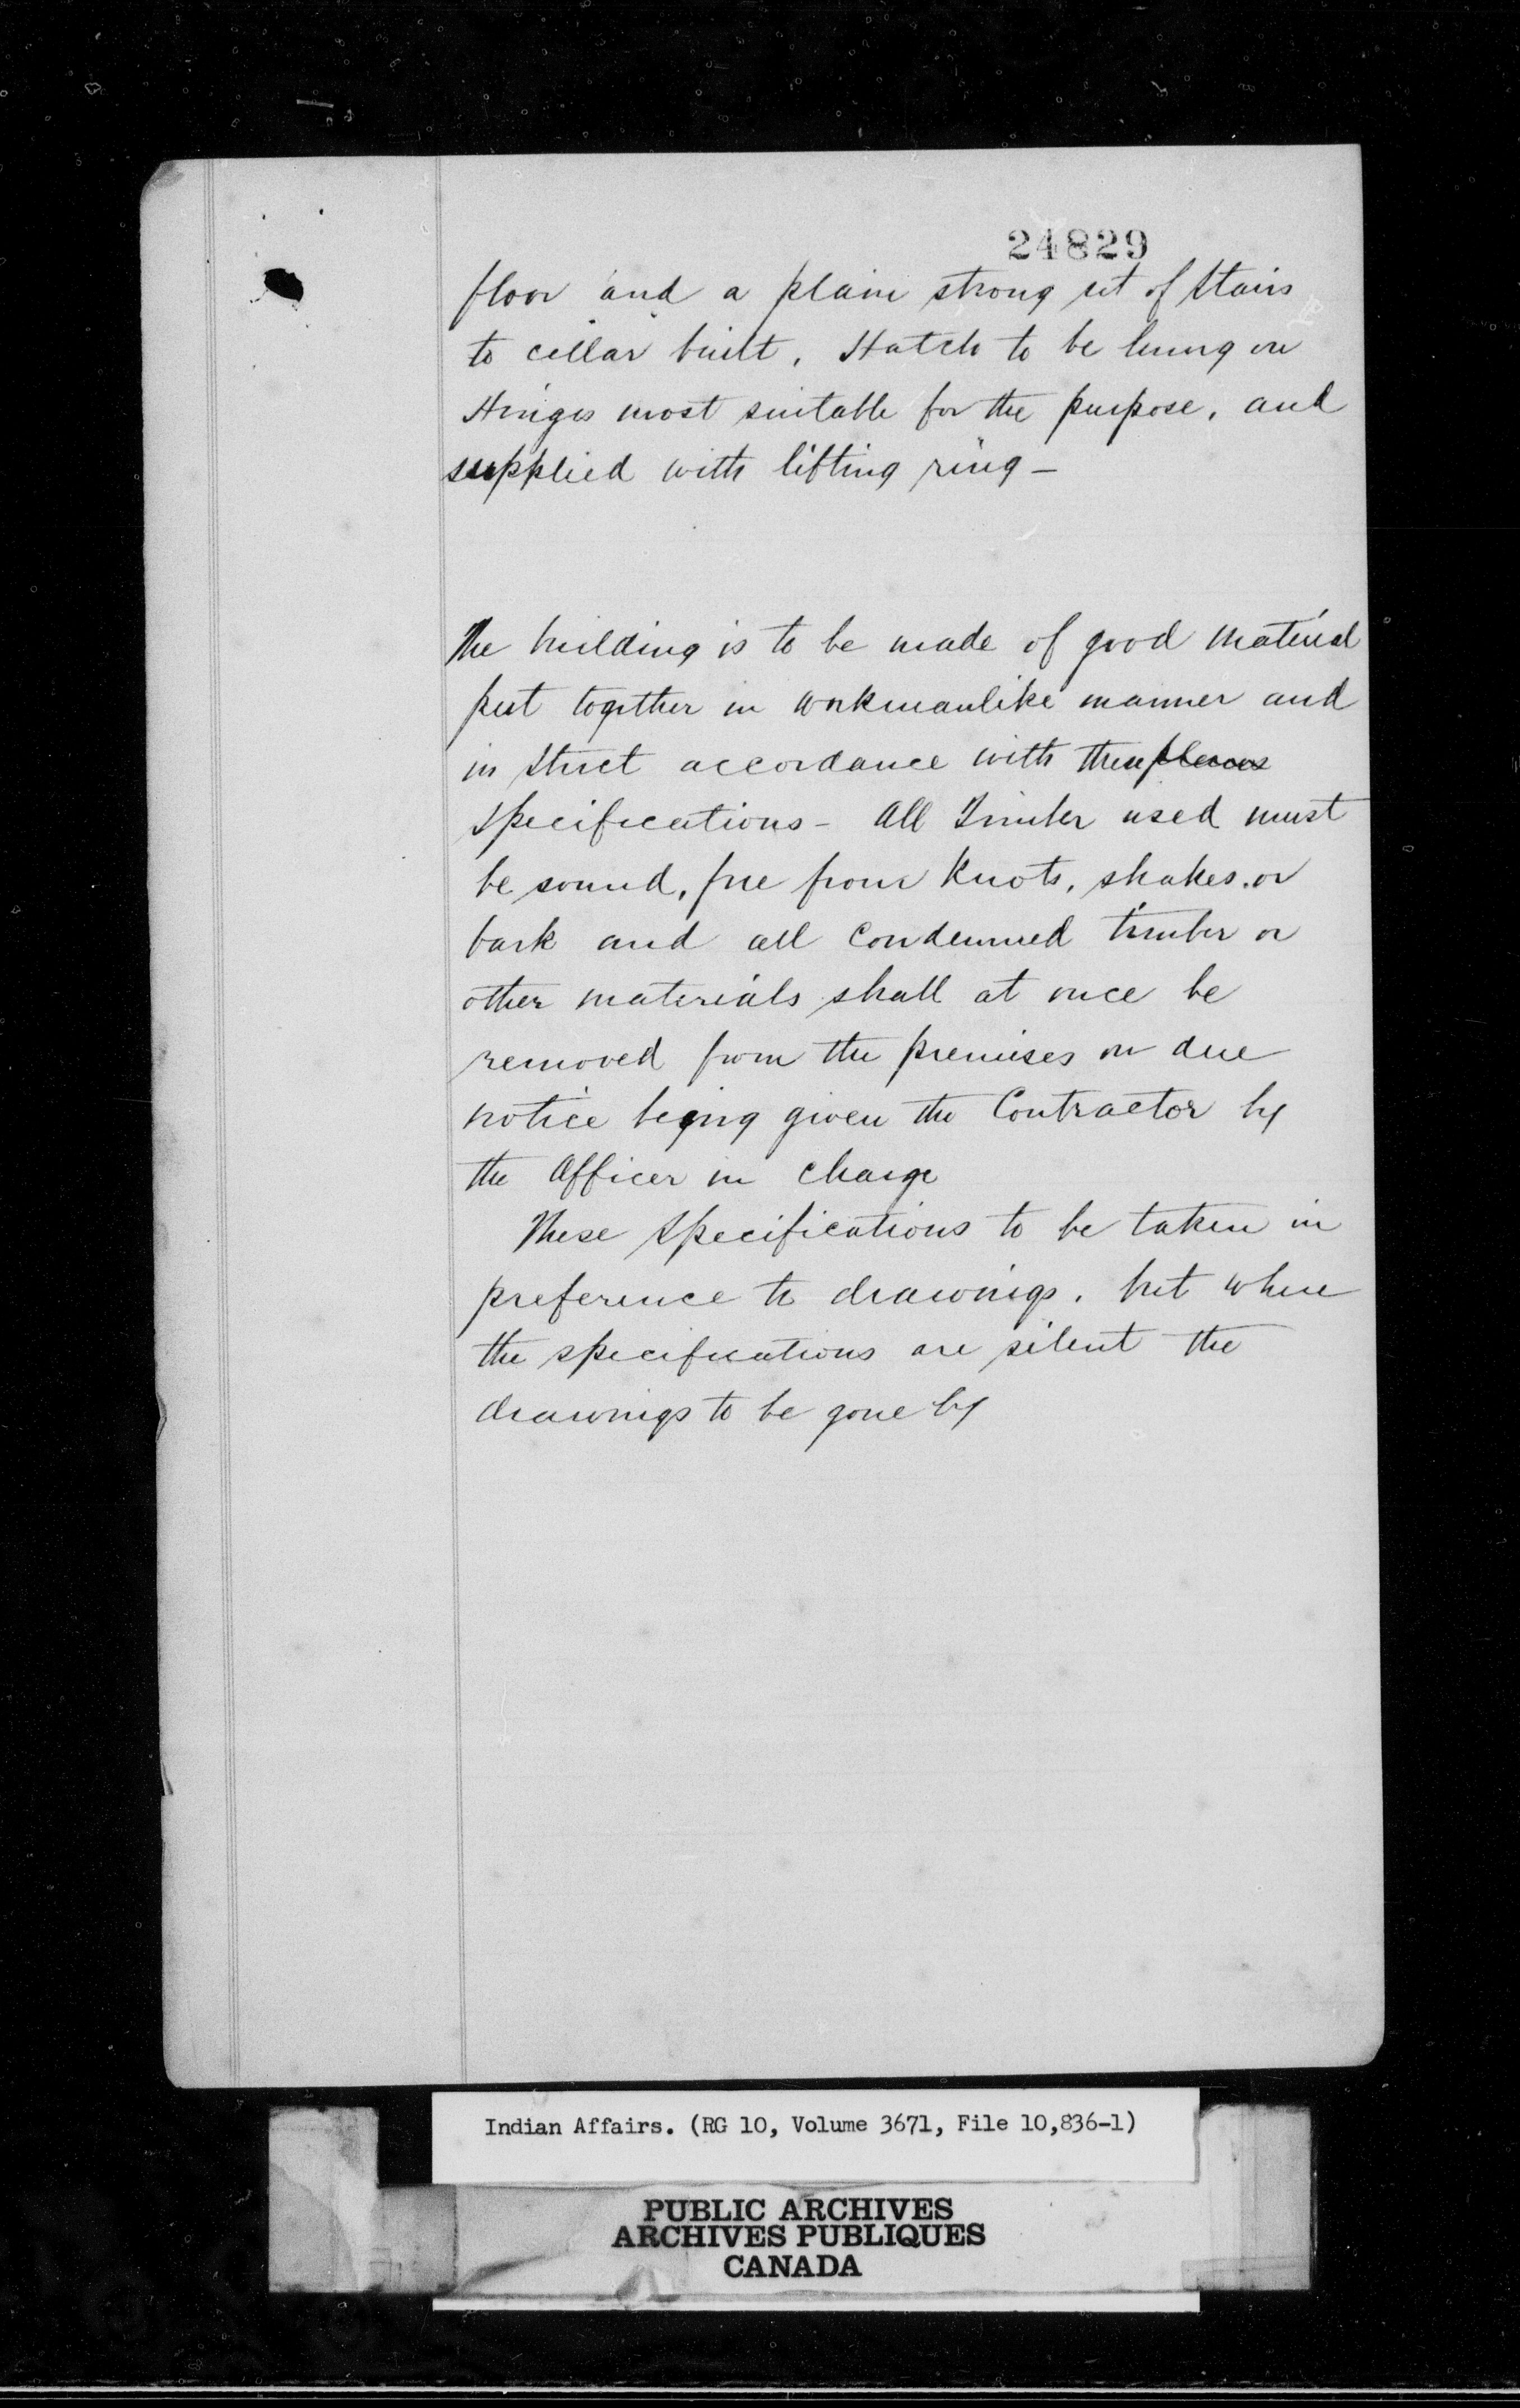 24829
floor and a plain strong set of Stairs
to cellar built, Hatch to be hung on
Hinges most suitable for the purpose, and
supplied with lifting ring -
The building is to be made of good Material
put together in workmanlike manner and
in Strict accordance with these plans
Specifications - All Timber used must
be sound, free from Knots, shakes, or
bark and all Condemned timber or
other materials shall at once be
removed from the premises on due
notice being given the Contractor by
the Officer in Charge
These Specifications to be taken in
preference to drawings, but where
the specifications are silent the
drawings to be gone by
Indian Affairs. (RG 10, Volume 3671, File 10,836-1)
PUBLIC ARCHIVES
ARCHIVES PUBLIQUES
CANADA